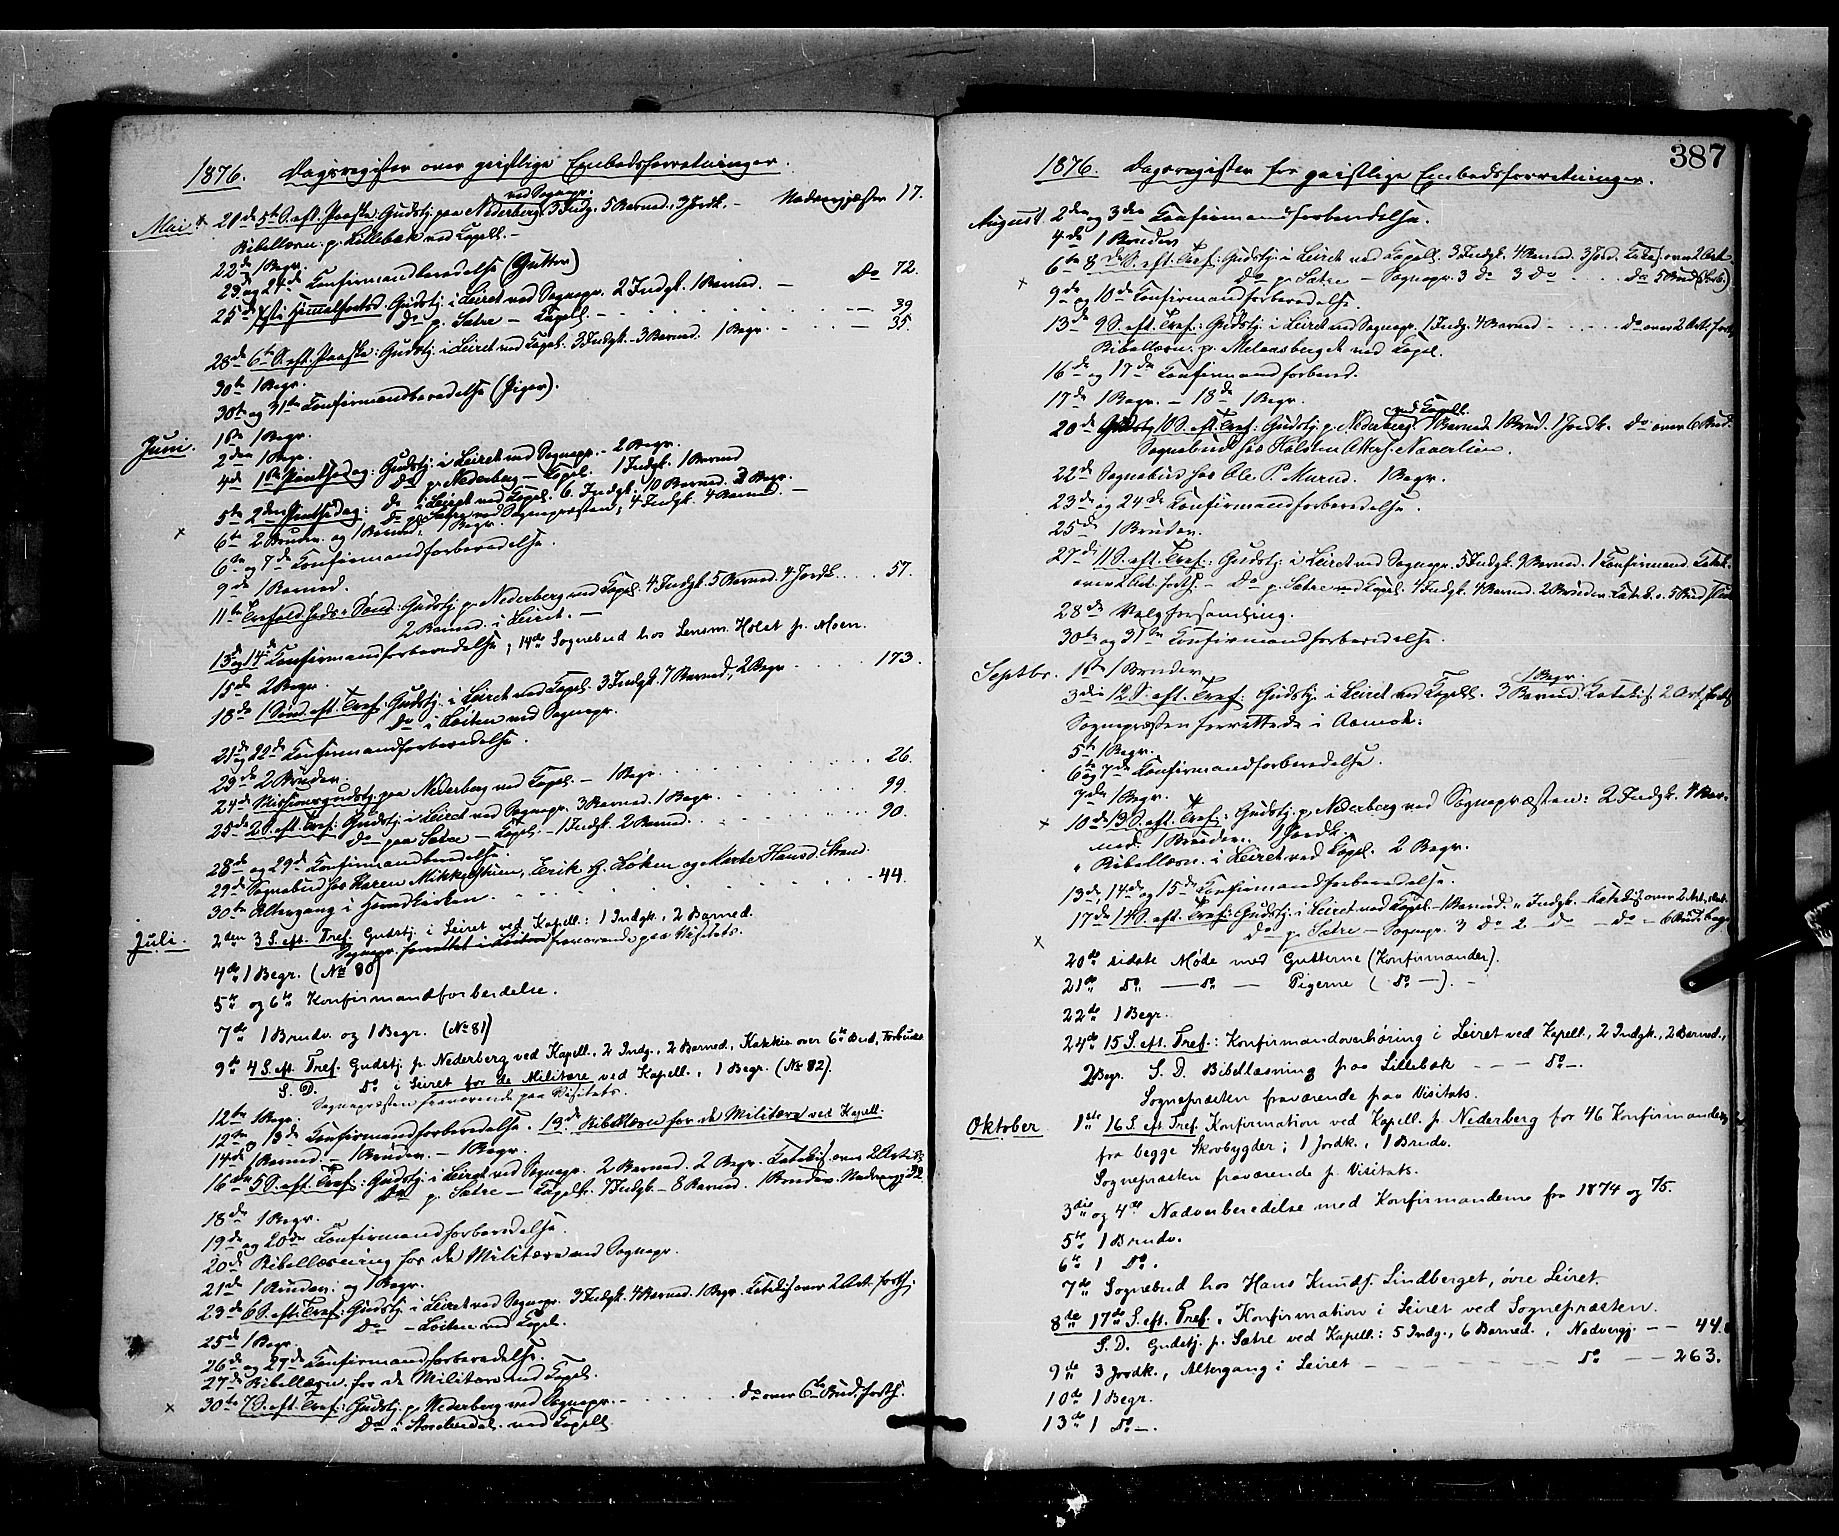 1876. Dagsregister over geistlige Embedsforretninger.
Mai x 21de 5te S. eft. Paaske Gudstj. paa Nederberg ved Sognepr. 3 Indg. 5 Barned. 3 Jordk. – Nadvergjæster 17.
Bibellæsn. p. Lillebæk ved Kapell. –
22de 1 Begr.
23de og 24de Konfirmandberedelse (Gutter)
25de Chr. Himmelfartsd. Gudstj. i Leiret ved Sognepr. 2 Indgk. 1 Barned. — Do 72.
Do p. Sætre – Kapell. – – – 39
28de 6te S. eft. Paaske: Gudstj. i Leiret ved Kapel. 3 Indgk. – 3 Barned. 1 Begr. – – – 35
30te 1 Begr.
30te og 31te Konfirmandberedelse (Piger).
Juni. 1ste 1 Begr.
2den 1 Begr.
4de 1ste Pintsedag: Gudstj. i Leiret ved Sognepr. – 2 Begr.
Do p. Nederberg – Kapel. 1 Indgk. 1 Barned
5te 2den Pintsedag: Do i Leiret ved Kapel. 6 Indgk. 10 Barned. 3 Begr.
Do p. Sætre ved Sognepræsten, 4 Indgk. 4 Barned. –
x 6te 2 Brudev. og 1 Barned. 1 Begr.
6te og 7de Konfirmandforberedelse.
9de 1 Barned.
11te Trefoldheds-Sønd: Gudstj. p. Nederberg ved Kapel. 4 Indgk. 5 Barned. 4 Jordk. . . . 57.
2 Barned. i Leiret. –
13de og 14de Konfirmandforberedelse, 14de Sognebud hos Lensm. Holst p. Moen.
15de 2 Begr.
18de 1 Sønd. eft. Tref. Gudstj. i Leiret ved Kapel. 3 Indgk. 7 Barned., 2 Begr. . . . . 173.
Do i Løiten ved Sognepr.
21de og 22de Konfirmandforberedelse.
23de 2 Brudev.
24de Missionsgudstj. paa Nederberg ved Kapel. – 1 Begr. . . . . 26.
25de 2 S. eft. Tref. Gudstj. i Leiret ved Sognepr. 3 Barned. 1 Begr. . . . . 99.
Do paa Sætre – Kapel. – 1 Indgk. 2 Barned. . . . . 90.
28de og 29de Konfirmandberedelse.
29de Sognebud hos Karen Mikkelstuen, Erik H. Løken og Marte Hansd. Strand.
30te Altergang i Hovedkirken. . . . . 44.
Juli. 2den 3 S. eft. Tref. Gudstj. i Leiret ved Kapell: 1 Indgk., 2 Barned.
Sognepr. forrettet i Løiten fraværende paa Visitats.
4de 1 Begr. (No 80)
5te og 6te Konfirmandforberedelse.
7de 1 Brudv. og 1 Begr. (No 81)
9de 4 S. eft. Tref. Gudstj. p. Nederberg ved Kapell., 2 Indg., 2 Barned., Katekis over 6te Bud, Forbudet
S. D. Do i Leiret for de Militære ved Kapell., 1 Begr. (No 82).
Sognepræsten fraværende paa Visitats.
12te 1 Begr.
12te og 13de Konfirmandforberedelse. 13de Bibellæsn. for de Militære ved Kapell.
14de 1 Barned. – 1 Brudev. – 1 Begr.
16de 5 S. eft. Tref: Gudstj. i Leiret ved Sognepr. 2 Barned. 2 Begr. Katekis. over 2 Artik.
Do p. Sætre – Kapell. 7 Indgk. – 8 Barned. 1 Brudev. Nadvergj. 32
18de 1 Begr.
19de og 20de Konfirmandforberedelse.
20de Bibellæsning for de Militære ved Sognepr.
21de 1 Brudev. og 1 Begr.
23de 6 S. eft. Tref: Gudstj. i Leiret ved Sognepr. 3 Indgk. 4 Barned. 1 Begr. Katekis over 2 Art. forts.
Do – Løiten ved Kapel.
25de 1 Begr.
26de og 27de Konfirmandforberedelse.
27de Bibellæsn. for de Militære ved Kapel.
x 30te 7 S. eft. Tref: Gudstj. p. Nederberg ved Sognepr. – . . . . Do over 6te Bud, forts.
Do i ved Kapell
387
1876. Dagsregister for geistlige Embedsforretninger.
August. 2den og 3die Konfirmandforberedelse.
4de 1 Brudev.
6te 8de S. eft. Tref: Gudstj. i Leiret ved Kapell 3 Indgk. 4 Barned. 3 Jord. Katek. over 2 Art.
x Do p. Sætre – Sognepr. 3 Do 3 Do . . . . Do 5 Bud (Forb.)
9de og 10de Konfirmandforberedelse.
13de 9 S. eft. Tref: Gudstj. i Leiret ved Sognepr. 1 Indg. 4 Barned – . . . . Do over 2 Art. forts.
Bibellæsn. p. Melaasberget ved Kapel.
16de og 17de Konfirmandforbered.
17de 1 Begr. – 18de 1 Begr.
20de 10 S. eft. Tref: Gudstj. p. Nederberg ved Kapell. 1 Barned. 1 Brud. 1 Jordk. Do over 6 Bud.
Sognebud hos Halsten Naverlien.
22de Sognebud hos Ole P. Murud. 1 Begr.
23de og 24de Konfirmandforberedelse.
25de 1 Brudev.
27de 11 S. eft. Tref: Gudstj. i Leiret ved Sognepr. 5 Indgk. 9 Barned. 1 Konfirmand Katek.
over 2 Art. forts. – Do p. Sætre ved Kapel. 4 Indgk. 4 Barned. 2 Brudev. Katek. o. 5 Bud slut.
28de Valgforsamling.
30te og 31te Konfirmandforberedelse.
Septbr. 1ste 1 Brudev.
3die 12 S. eft. Tref. Gudstj. i Leiret ved Kapell. 3 Barned. 1 Begr. Katekis 2 Art. forts.
Sognepræsten forrettede i Aamot:
5te 1 Begr.
6te og 7de Konfirmandforberedelse.
7de 1 Begr.
x 10de 13 S. eft. Tref: Gudstj. p. Nederberg ved Sognepræsten: 2 Indgk. 4 Bar-
ned. 1 Brudev. 1 Jordk.
" Bibellæsn. i Leiret ved Kapel. 2 Begr.
13de, 14de og 15de Konfirmandforberedelse.
17de 14 S. eft. Tref: Gudstj. i Leiret ved Kapel – 1 Barned. " Indgk. Katekis over 2 Art. slut.
x Do p. Sætre – Sognepr. 3 Do 2 – Do – Do – 6 Bud. beg.
20de sidste Møde med Gutterne (Konfirmander).
21de Do — Do — Pigerne ( Do —). –
22de 1 Begr.
24de 15 S. eft. Tref.: Konfirmandoverhøring i Leiret ved Kapell., 2 Indgk., 2 Barned.,
2 Begr. S. D. Bibellæsning paa Lillebæk – – – Do –.
Sognepræsten fraværende paa Visitats.
Oktober 1ste 16 S. eft. Tref. Konfirmation ved Kapell. p. Nederberg for 46 Konfirmander
fra begge Skovbygder; 1 Jordk., 1 Brudv.
Sognepræsten fraværende p. Visitats.
3die og 4de Nadverberedelse med Konfirmanderne fra 1874 og 75.
5te 1 Brudv.
6te 1 Do.
7de Sognebud hos Hans Knudsf. Lindberget, øvre Leiret.
8de 17de S. eft. Tref., Konfirmation i Leiret ved Sognepræsten.
S. D. Gudstj. p. Sætre ved Kapell.: 5 Indg., 6 Barned., Nadvergj. – – 44.
9de 3 Jordk., Altergang i Leiret – – – – – – Do – – 263.
10de 1 Begr.
13de 1 Do –.